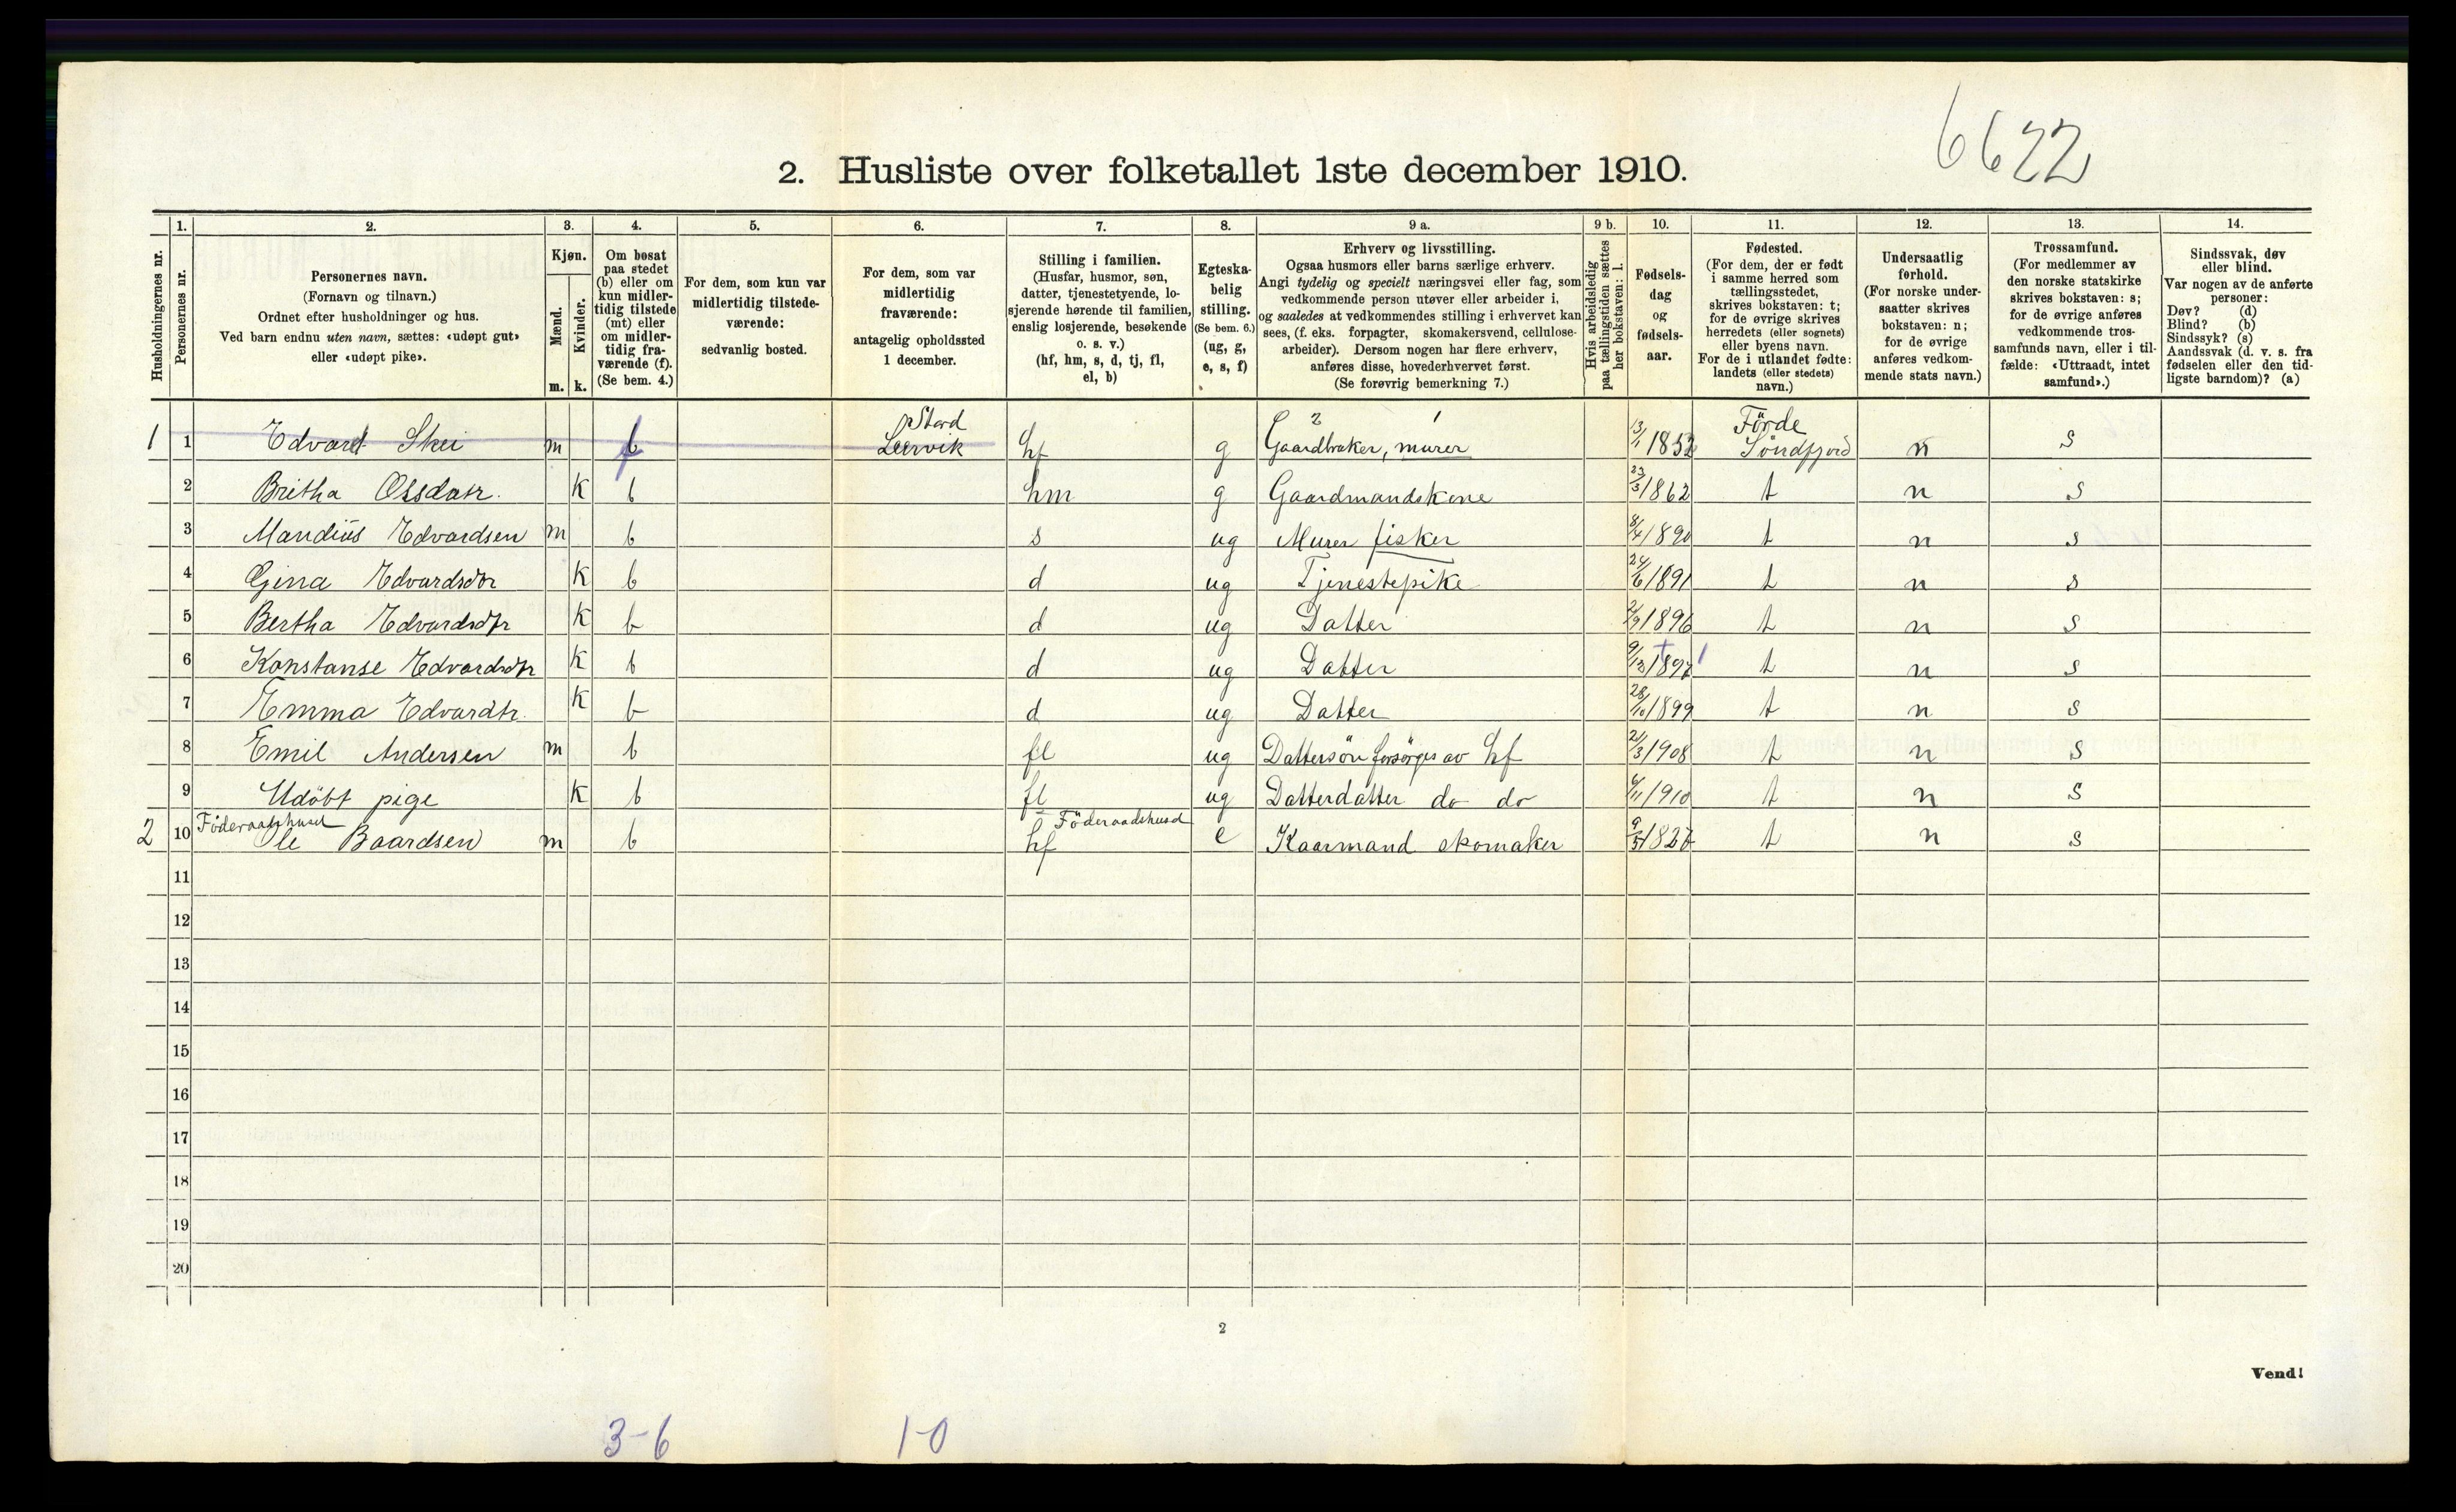 6622
2. Husliste over folketallet 1ste december 1910.
Husholdningernes nr.
1.
Personernes nr.
2.
Personernes navn.
(Fornavn og tilnavn.)
Ordnet efter husholdninger og hus.
Ved barn endnu uten navn, sættes: «udøpt gut»
eller «udøpt pike».
3.
Kjøn.
Mænd.
m.
Kvinder.
k.
4.
Om bosat
paa stedet
(b) eller om
kun midler-
tidig tilstede
(mt) eller
om midler-
tidig fra-
værende (f).
(Se bem. 4.)
5.
For dem, som kun var
midlertidig tilstede-
værende:
sedvanlig bosted.
6.
For dem, som var
midlertidig
fraværende:
antagelig opholdssted
1 december.
7.
Stilling i familien.
(Husfar, husmor, søn,
datter, tjenestetyende, lo-
sjerende hørende til familien,
enslig losjerende, besøkende
o. s. v.)
(hf, hm, s, d, tj, fl,
el, b)
8.
Egteska-
belig
stilling.
(Se bem. 6.)
(ug, g,
e, s, f)
9 a.
Erhverv og livsstilling.
Ogsaa husmors eller barns særlige erhverv.
Angi tydelig og specielt næringsvei eller fag, som
vedkommende person utøver eller arbeider i,
og saaledes at vedkommendes stilling i erhvervet kan
sees, (f. eks. forpagter, skomakersvend, cellulose-
arbeider). Dersom nogen har flere erhverv,
anføres disse, hovederhvervet først.
(Se forøvrig bemerkning 7.)
9 b.
Hvis arbeidsledig
paa tællingstiden sættes
her bokstaven: l.
10.
Fødsels-
dag
og
fødsels-
aar.
11.
Fødested.
(For dem, der er født
i samme herred som
tællingsstedet,
skrives bokstaven: t;
for de øvrige skrives
herredets (eller sognets)
eller byens navn.
For de i utlandet fødte:
landets (eller stedets)
navn.)
12.
Undersaatlig
forhold.
(For norske under-
saatter skrives
bokstaven: n;
for de øvrige
anføres vedkom-
mende stats navn.)
13.
Trossamfund.
(For medlemmer av
den norske statskirke
skrives bokstaven: s;
for de øvrige anføres
vedkommende tros-
samfunds navn, eller i til-
fælde: «Uttraadt, intet
samfund».)
14.
Sindssvak, døv
eller blind.
Var nogen av de anførte
personer:
Døv? (d)
Blind? (b)
Sindssyk? (s)
Aandssvak (d. v. s. fra
fødselen eller den tid-
ligste barndom)? (a)
Stord 2 1 Förde
1 1 Edvard Skei m f Leervik hf g Gaardbruker, murer 13/1 1852 Söndfjord n s
2 Britha Olsdatr. k b hm g Gaardmandskone 23/3 1862 t n s
3 Mandius Edvardsen m b s ug Murer fisker 8/4 1890 t n s
4 Gina Edvardsdtr k b d ug Tjenestepike 24/6 1891 t n s
5 Bertha Edvardsdtr k b d ug Datter 2/9 1896 t n s
6 Konstanse Edvardsdtr k b d ug Datter 9/12 1897 t n s
7 Emma Edvardtr. k b d ug Datter 28/10 1899 t n s
8 Emil Andersen m b fl ug Dattersön forsörges av hf 21/3 1908 t n s
9 Udöbt pige k b fl ug Datterdatter do do 6/11 1910 t n s
Föderaadshuset Föderaadshusd
2 10 Ole Baardsen m b hf e Kaarmand skomaker 9/5 1827 t n s
11
12
13
14
15
16
17
18
19
20
2
Vend!
3-6 1-0